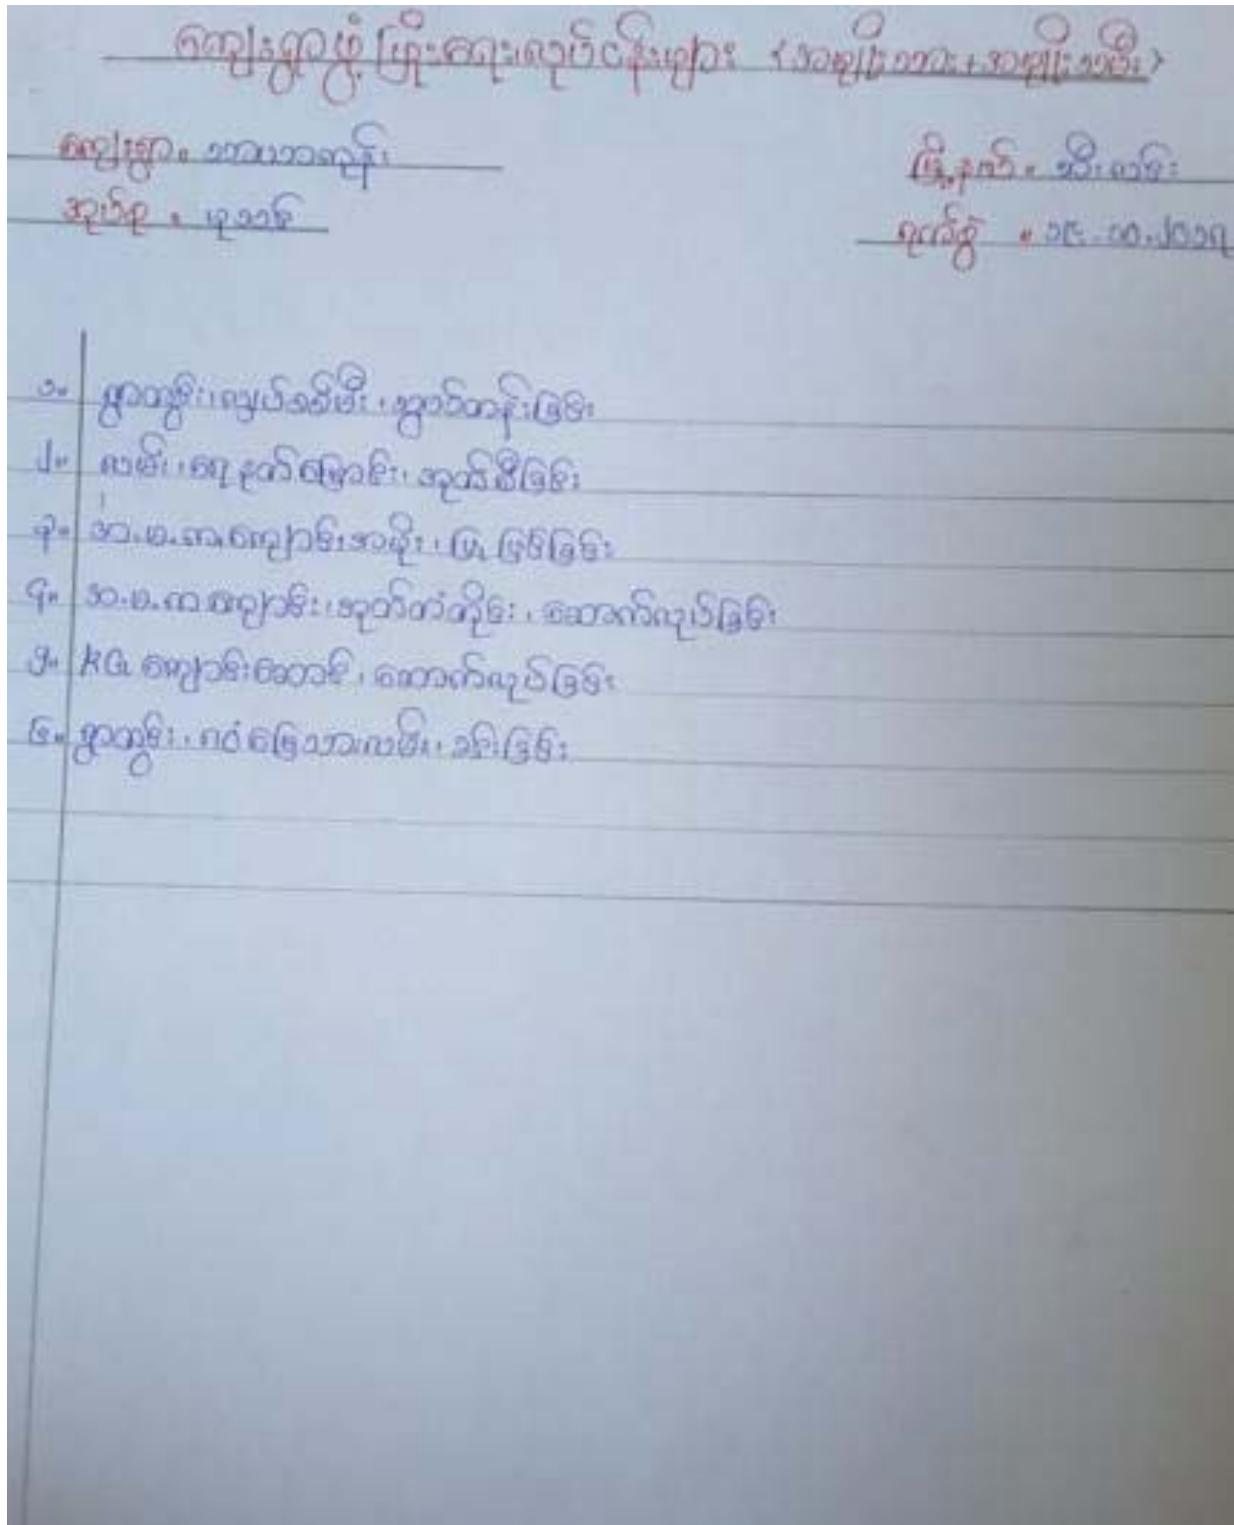 ကျေးရွာဖွံ့ဖြိုးရေးလုပ်ငန်းများ <အမျိုးသား+အမျိုးသမီး>
ကျေးရွာ။
မြို့နယ်။ သီးလင်း
အုပ်စု။
ရက်စွဲ ။ ၁၄.၁၀.၂၀၁၇
၁။ ရွာတွင်း၊လျှပ်စစ်မီး၊သွယ်တန်းခြင်း
၂။ လမ်း၊ရေနုတ်မြောင်း၊အုတ်စီခြင်း
၃။ အ.မ.က ကျောင်းအမိုး၊ပြုပြင်ခြင်း
၄။ အ.မ.က ကျောင်း၊အုတ်တံတိုင်း၊ဆောက်လုပ်ခြင်း
၅။ KG ကျောင်းဆောင်၊ဆောက်လုပ်ခြင်း
၆။ ရွာတွင်း၊ဂဝံမြေသားလမ်း၊ခင်းခြင်း